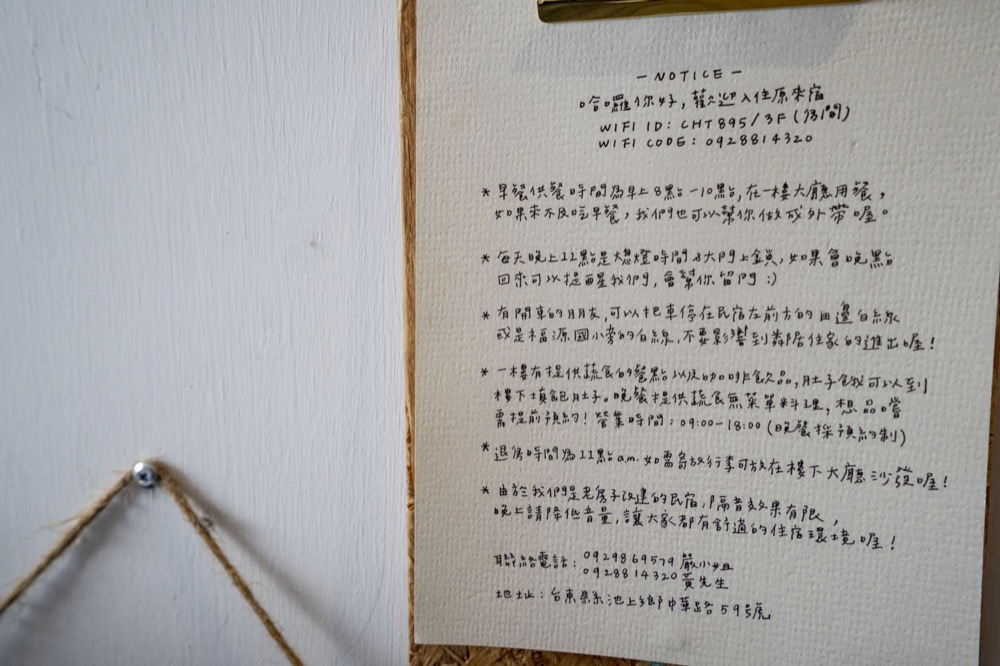 — NOTICE —
哈囉你好，歡迎入住原來宿
WIFI ID: CHT895/3F(房間)
WIFI CODE: 0928814320
* 早餐供餐時間為早上8點-10點，在一樓大廳用餐，
如果來不及吃早餐，我們也可以幫你做成外帶喔。
* 每天晚上11點是大廳燈時間&大門上鎖，如果會晚點
回來可以提醒我們，會幫你留門 :)
* 有開車的朋友，可以把車停在民宿左前方的田邊白線
或是福源國小旁的白線，不要影響到鄰居住家的進出喔！
* 一樓有提供蔬食的餐點以及咖啡飲品，肚子餓我可以到
樓下填飽肚子。晚餐提供蔬食無菜單料理，想品嚐
需提前預約！營業時間：09:00-18:00(晚餐採預約制)
* 退房時間為11點a.m. 如需寄放行李可放在樓下大廳沙發喔！
* 由於我們是老房子改建的民宿，隔音效果有限，
晚上請降低音量，讓大家都有舒適的住宿環境喔！
聯絡電話：0929869579 嚴小姐
0928814320 黃先生
地址：台東縣池上鄉中華路59號